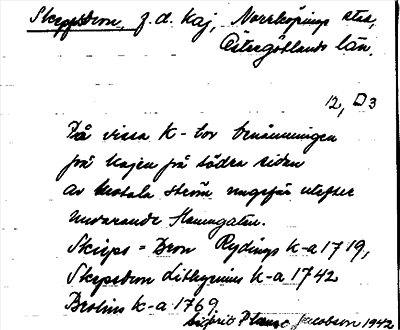 Skeppsbron, f.d. Kaj, Norrköpings stad,
Östergötlands län.
12, D3
På vissa K-or benämningen
på kajen på södra sidan
av Motala ström ungefär utefter
nuvarande Hamngatan.
Skieps=Bron Rydings k-a 1719,
Skepsbron Lithzenius k-a 1742
Brolins k-a 1769.
Sigurd Jacobson 1942